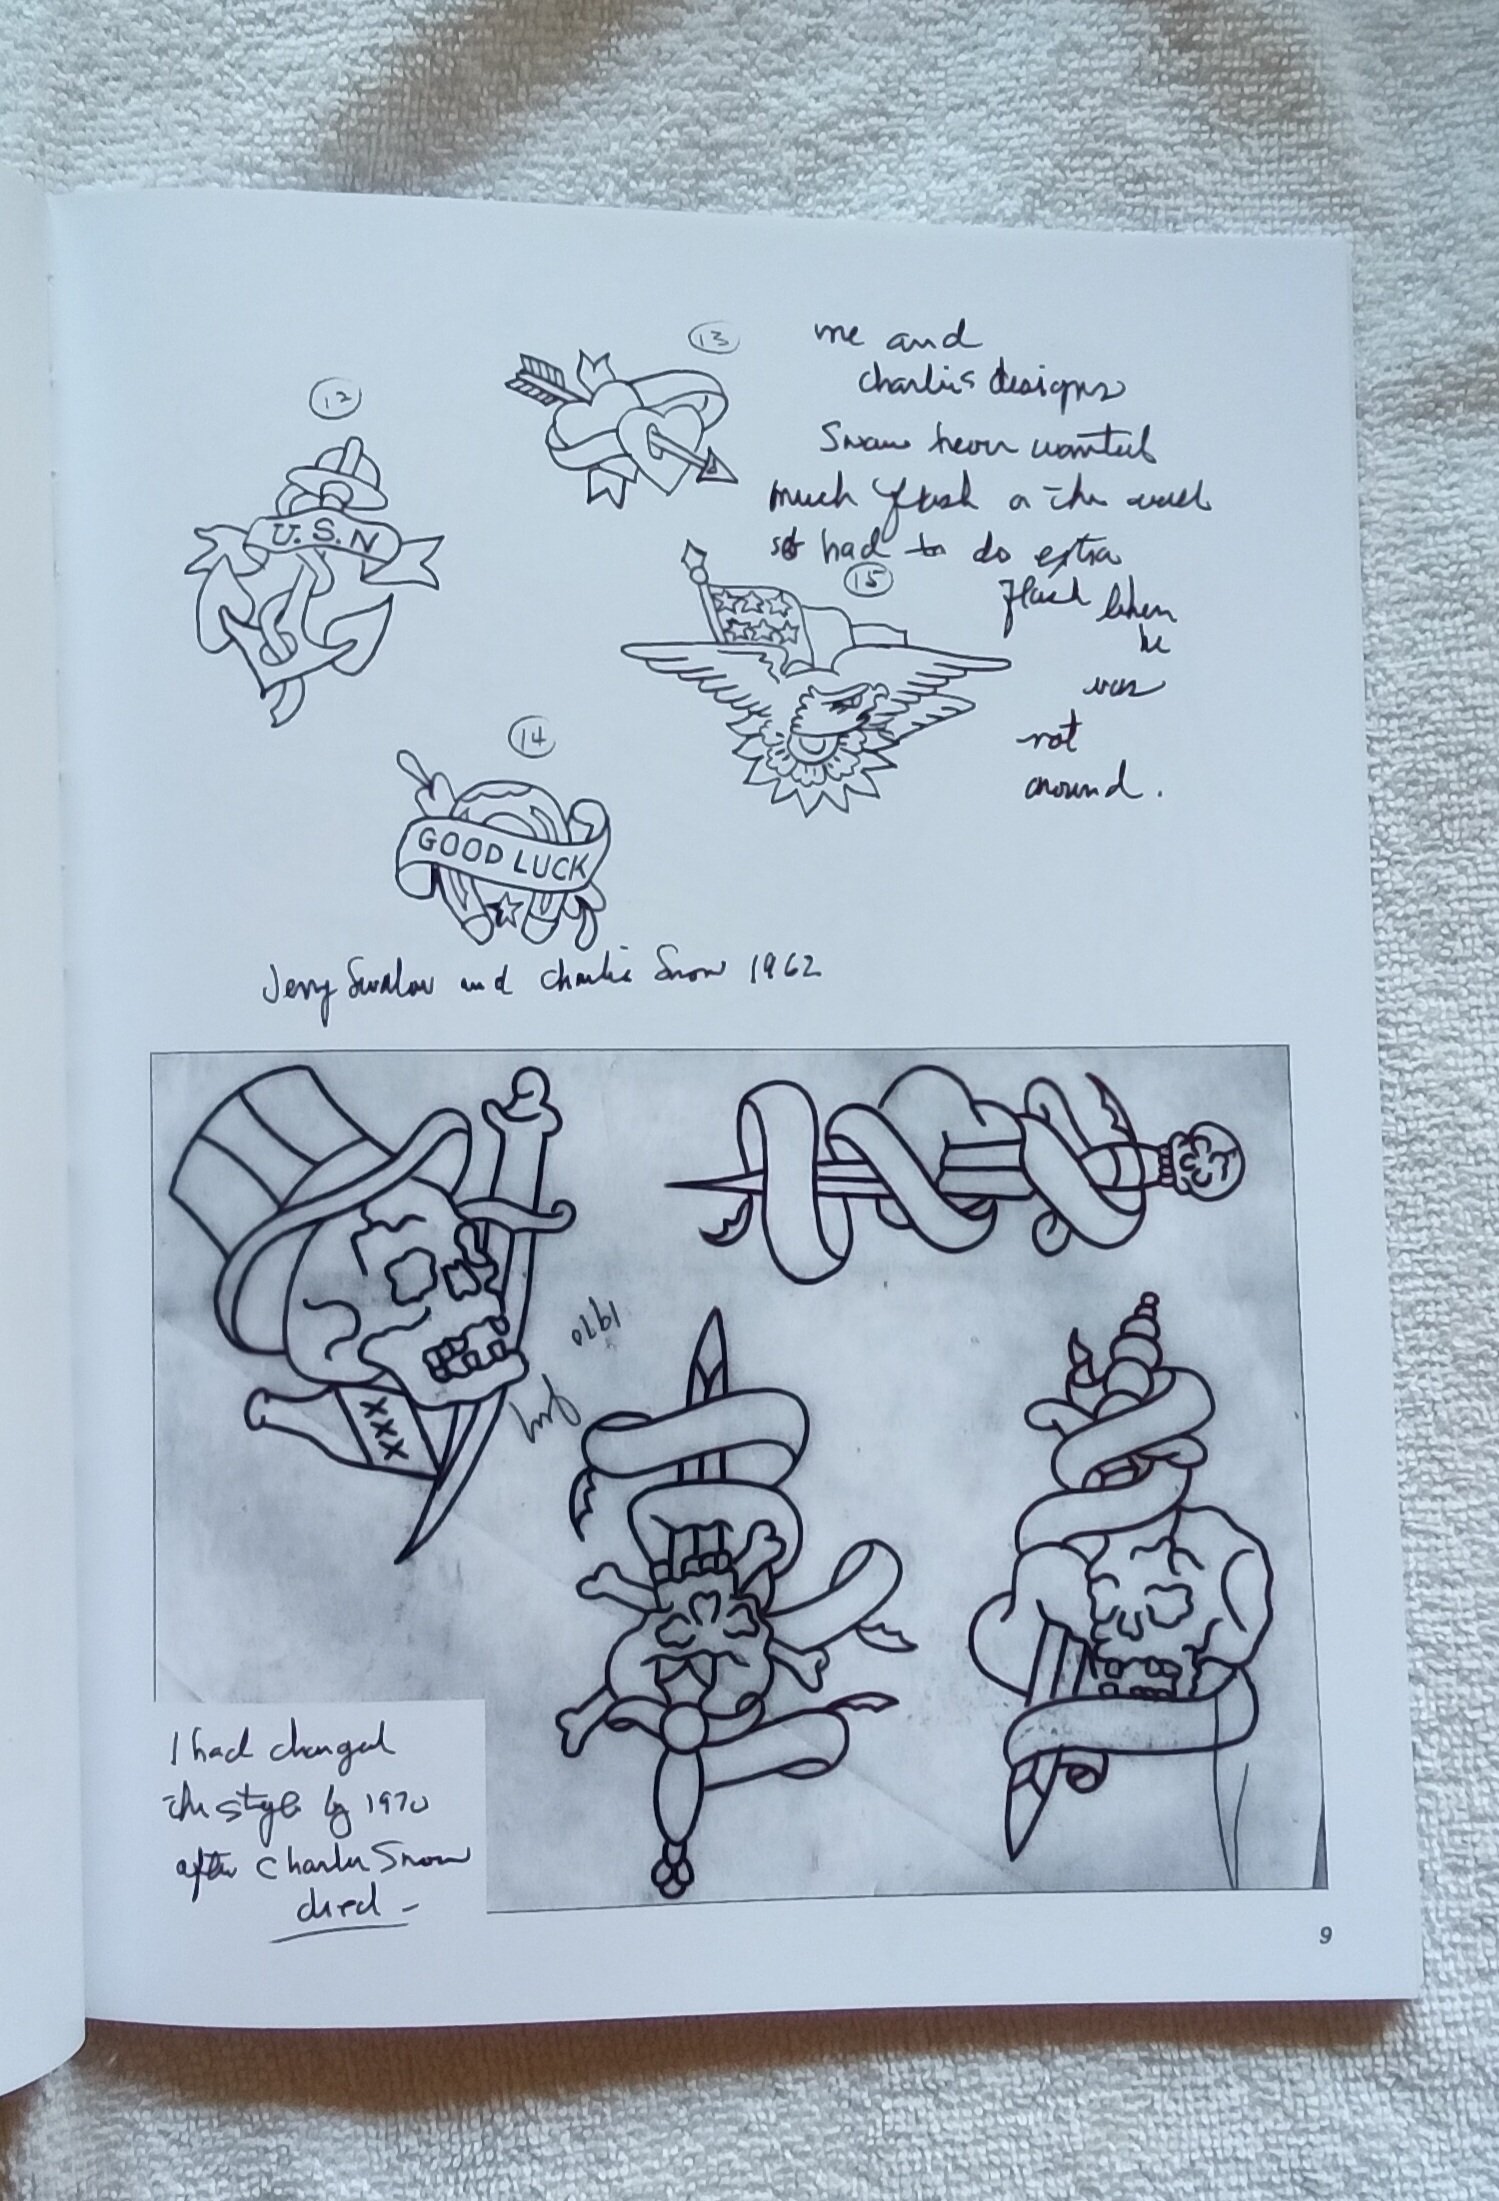 12
13
me and
Charlies designs
Snow never wanted
much flash on the wall
so had to do extra
flash when
he
was
not
around.
U.S.N
15
14
GOOD LUCK
Jerry Swallow and Charlie Snow 1962
1970
XXX
I had changed
the style by 1970
after Charlie Snow
died -
9